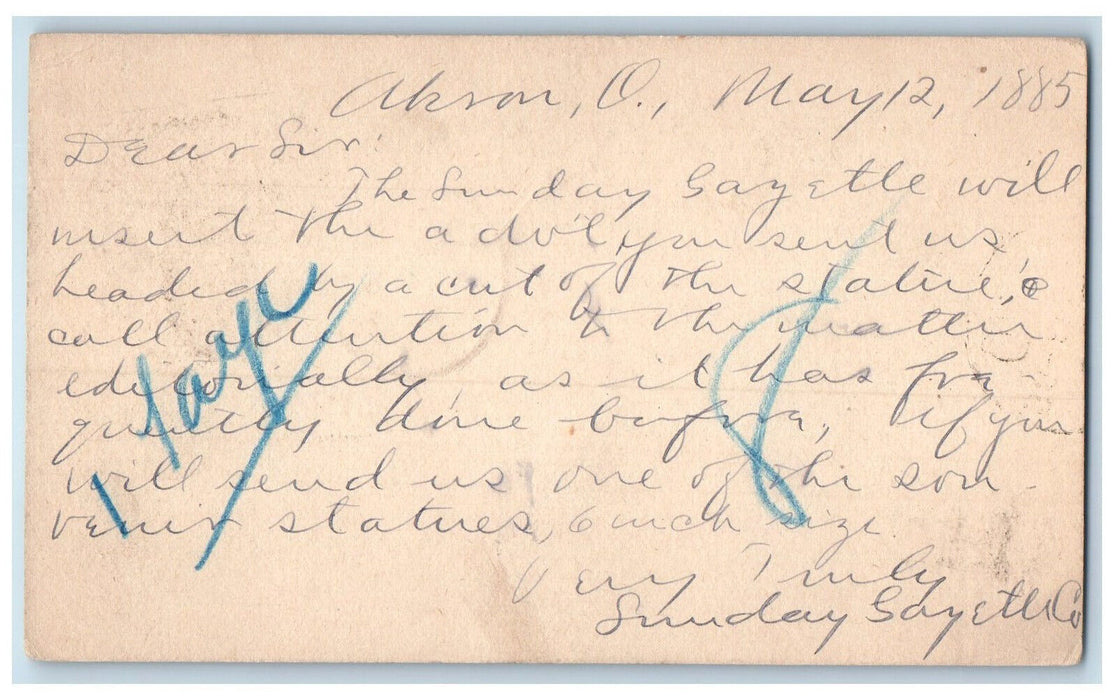 Akron, O., May 12, 1885
Dear Sir:
The Sunday Gazette will
insert the advt, you sent us
headed by a cut of the statue, &
call attention to the matter
editorially, as it has fre-
quently done before, if you
will send us one of the sou-
venir statues, 6 inch size
Very Truly
Sunday Gazette Co
1